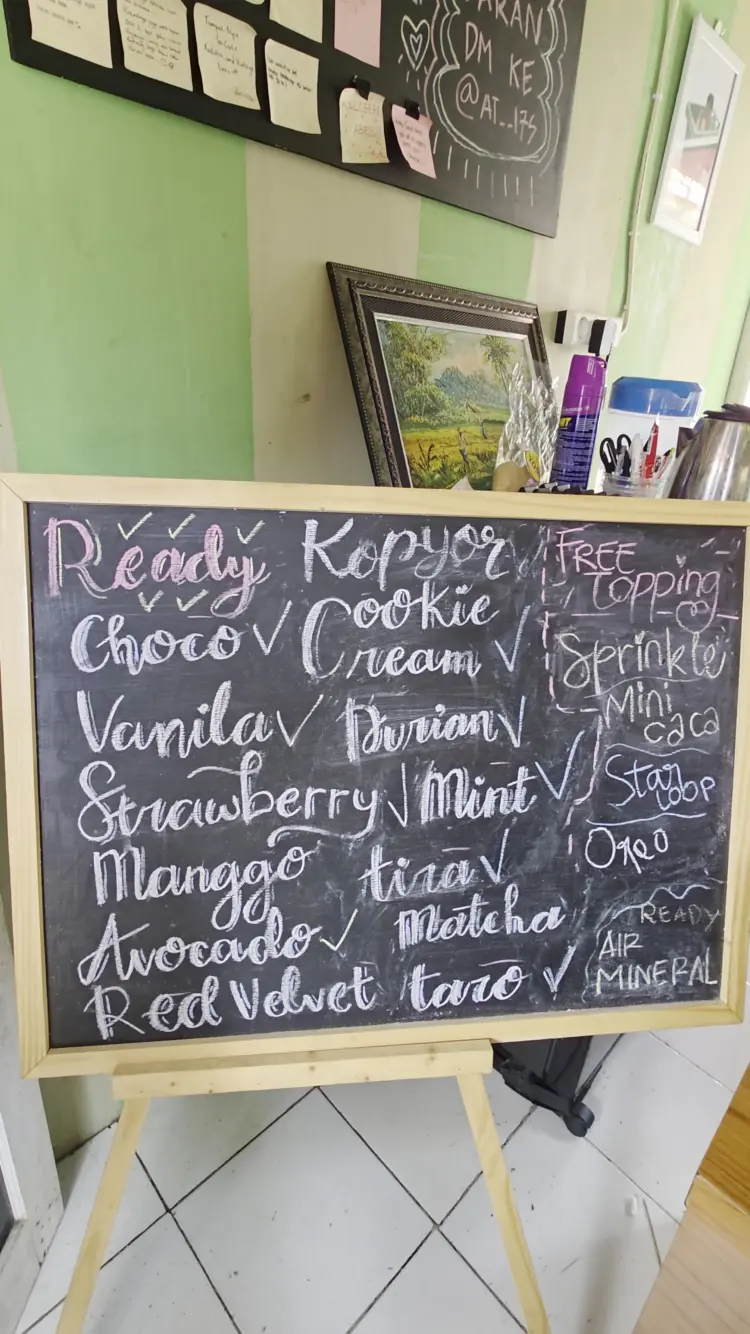 ARAN
DM KE
@AT__175
Ready ✓ ✓ ✓ ✓ ✓
Choco ✓
Vanila ✓
Strawberry ✓
Manggo
Avocado ✓
Red Velvet
Kopyor
Cookie
Cream ✓
Durian ✓
Mint ✓
tira ✓
Matcha
taro ✓
FREE
Topping
Sprinkle
Mini
caca
Star
Loop
Oreo
READY
AIR
MINERAL